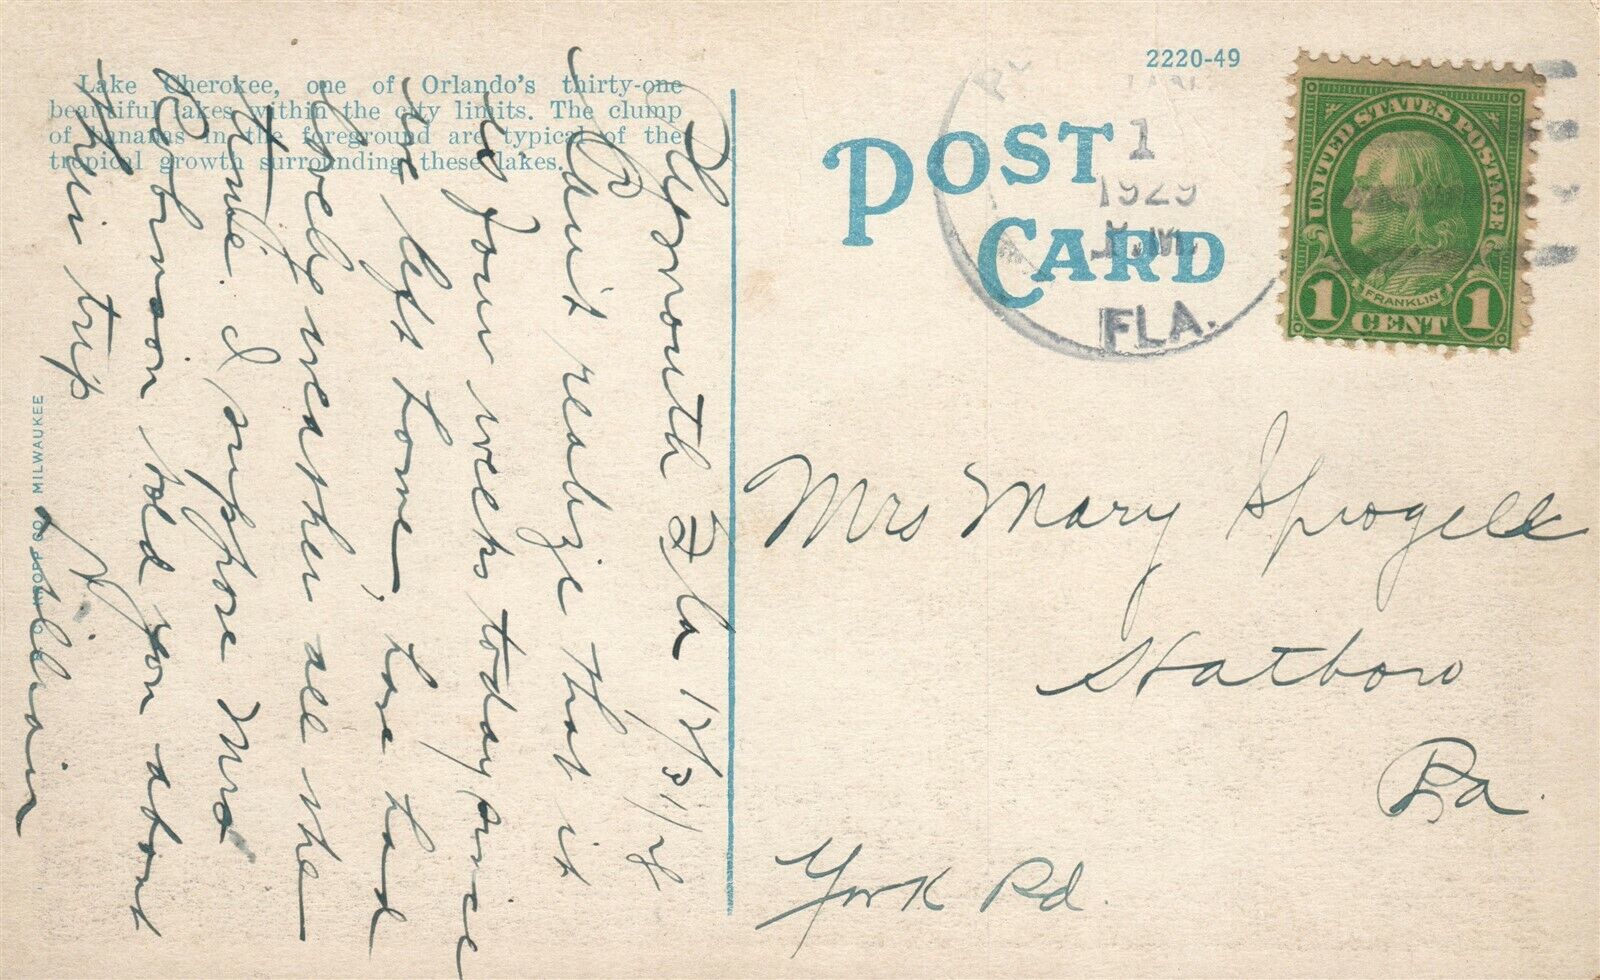 Lake Cherokee, one of Orlando's thirty-one
beautiful lakes within the city limits. The clump
of bananas in the foreground are typical of the
tropical growth surrounding these lakes.
2220-49
POST
CARD
1
1929
P.M.
FLA.
UNITED STATES POSTAGE
FRANKLIN
1 CENT 1
Plymouth Fla 12/31/28
Can't realize that it
is four weeks today since
we left home, have had
lovely weather all the
time. I suppose Mrs
told you about
your trip
Lillian
Mrs Mary Sprogell
Hatboro
Pa.
York Rd.
KROPP CO. MILWAUKEE